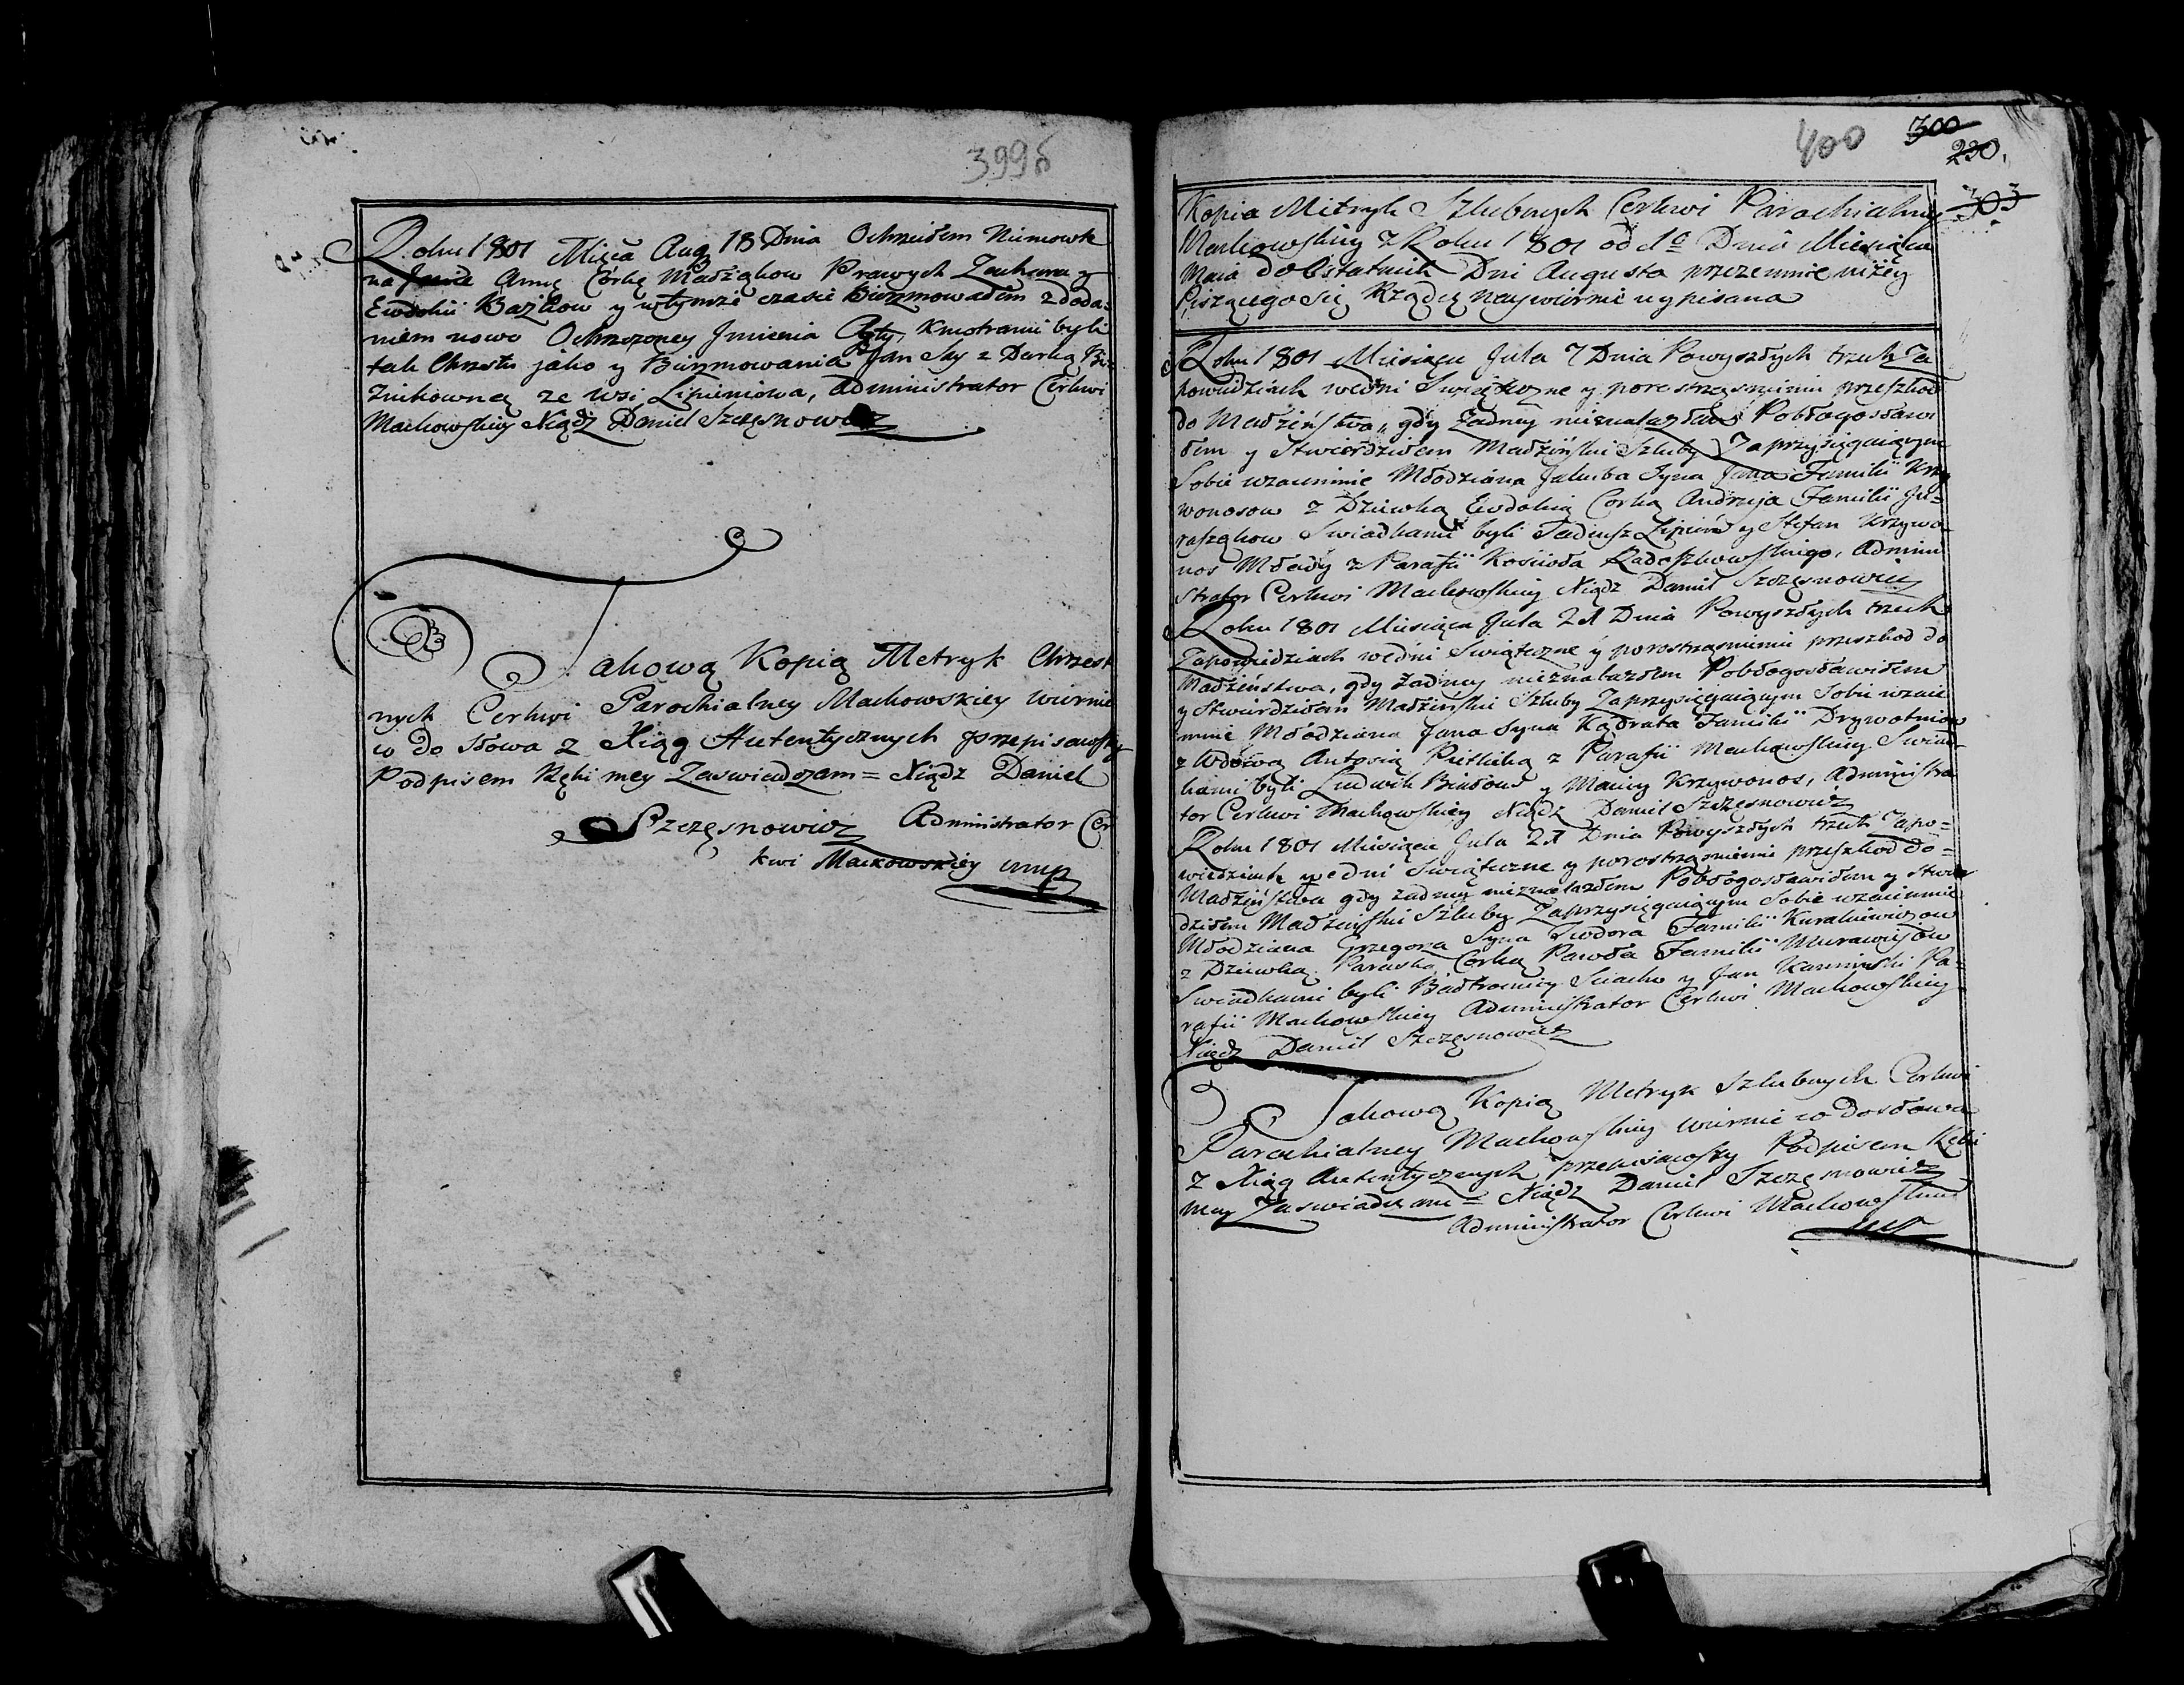 399б
Roku 1801 Mięca Aug 18 Dnia Ochrzciłem Niemowle
na Jmie Annę Corkę Małżąkow Prawych Zachara y
Ewdokii Bażkow y wtymże czasie Bierzmowałem z doda-
niem nowo Ochrzczoney Jmienia Agty, Kmotrami byli
tak Chrztu jako y Bierzmowania Jan Sky z Darką
Znikowną ze wsi Lipieniowa, Administrator Cerkwi
Mackowskiey Xiądz Daniel Szczęsnowicz
Takową Kopią Metryk Chrzest
nych Cerkwi Parochialney Mackowskiey wiernie
w do słowa z Xiąg Autentycznych przepisawszy
Podpisem Ręki mey Zaswiadczam = Xiądz Daniel
Szczęsnowicz Administrator Cer
kwi Mackowskiey mmp
400 300
230.
303
Kopia Mitryk Szlubnych Cerkwi Parochialney
Mackowskiey z Roku 1801 od 1o Dnia Miesiąca
Maia do Ostatnich Dni Augusta przezemnie niżey
Piszącego Się Rządcę naywiernie wypisana
Roku 1801 Miesiąca Jula 7 Dnia Powyszłych trzech Za
powiedziach wedni Swiąteczne y porostrząsnieniu przeszkod
do Małżeństwa, gdy Żadney nieznalazłem Pobłogosławi
łem y Stwierdziłem Małżeński Szluby Zaprzysięgaiącym
Sobie wzaiemnie Młodziana Jakuba Syna Jana Familii Krzy
wonosow z Dziewką Ewdokią Corką Andrzeja Familii Ju-
raszkow Swiadkami byli Tadeusz Lipień y Stefan Krzywo
nos Młody z Parafii Kościoła Radoszkowskiego, Admini
strator Cerkwi Mackowskiey Xiądz Daniel Szczęsnowicz
Roku 1801 Miesiąca Jula 21 Dnia Powyszłych trzech
Zapowiedziach wedni Swiąteczne y porostrząsnieniu przeszkod do
Małżeństwa, gdy Żadney nieznalazłem Pobłogosławiłem
y Stwierdziłem Małżeński Szluby Zaprzysięgaiącym Sobie wzaie
mnie Młodziana Jana Syna Kądrata Familii Drywotniow
z Wdową Antosią Pietkiką z Parafii Mackowskiey Swiad
kami byli Ludwik Białous y Maciey Krzywonos, Administra
tor Cerkwi Mackowskiey Xiądz Daniel Szczęsnowicz
Roku 1801 Miesiąca Jula 21 Dnia Powyszłych trzech Zapo-
wiedziach wedni Swiąteczne y porostrząsnieniu przeszkod do-
Małżeństwa gdy żadney nieznalazłem Pobłogosławiłem y Stwier
dziłem Małżeński Szluby Zaprzysięgaiącym Sobie wzaiemnie
Młodziana Grzegorza Syna Teodora Familii Kuralewiczow
z Dziewką Paraską Corką Pawła Familii Murawiejow
Swiadkami byli Bałtromiey Sciacko y Jan Kaminski Pa-
rafii Mackowskiey Administrator Cerkwi Mackowskiey
Xiądz Daniel Szczęsnowicz
Takową Kopią Metryk Szlubnych Cerkwi
Parochialney Mackowskiey wiernie w do słowa
z Xiąg Autentycznych przepisawszy Podpisem Ręki
mey Zaswiadczam = Xiądz Daniel Szczęsnowicz
Administrator Cerkwi Mackowskiey